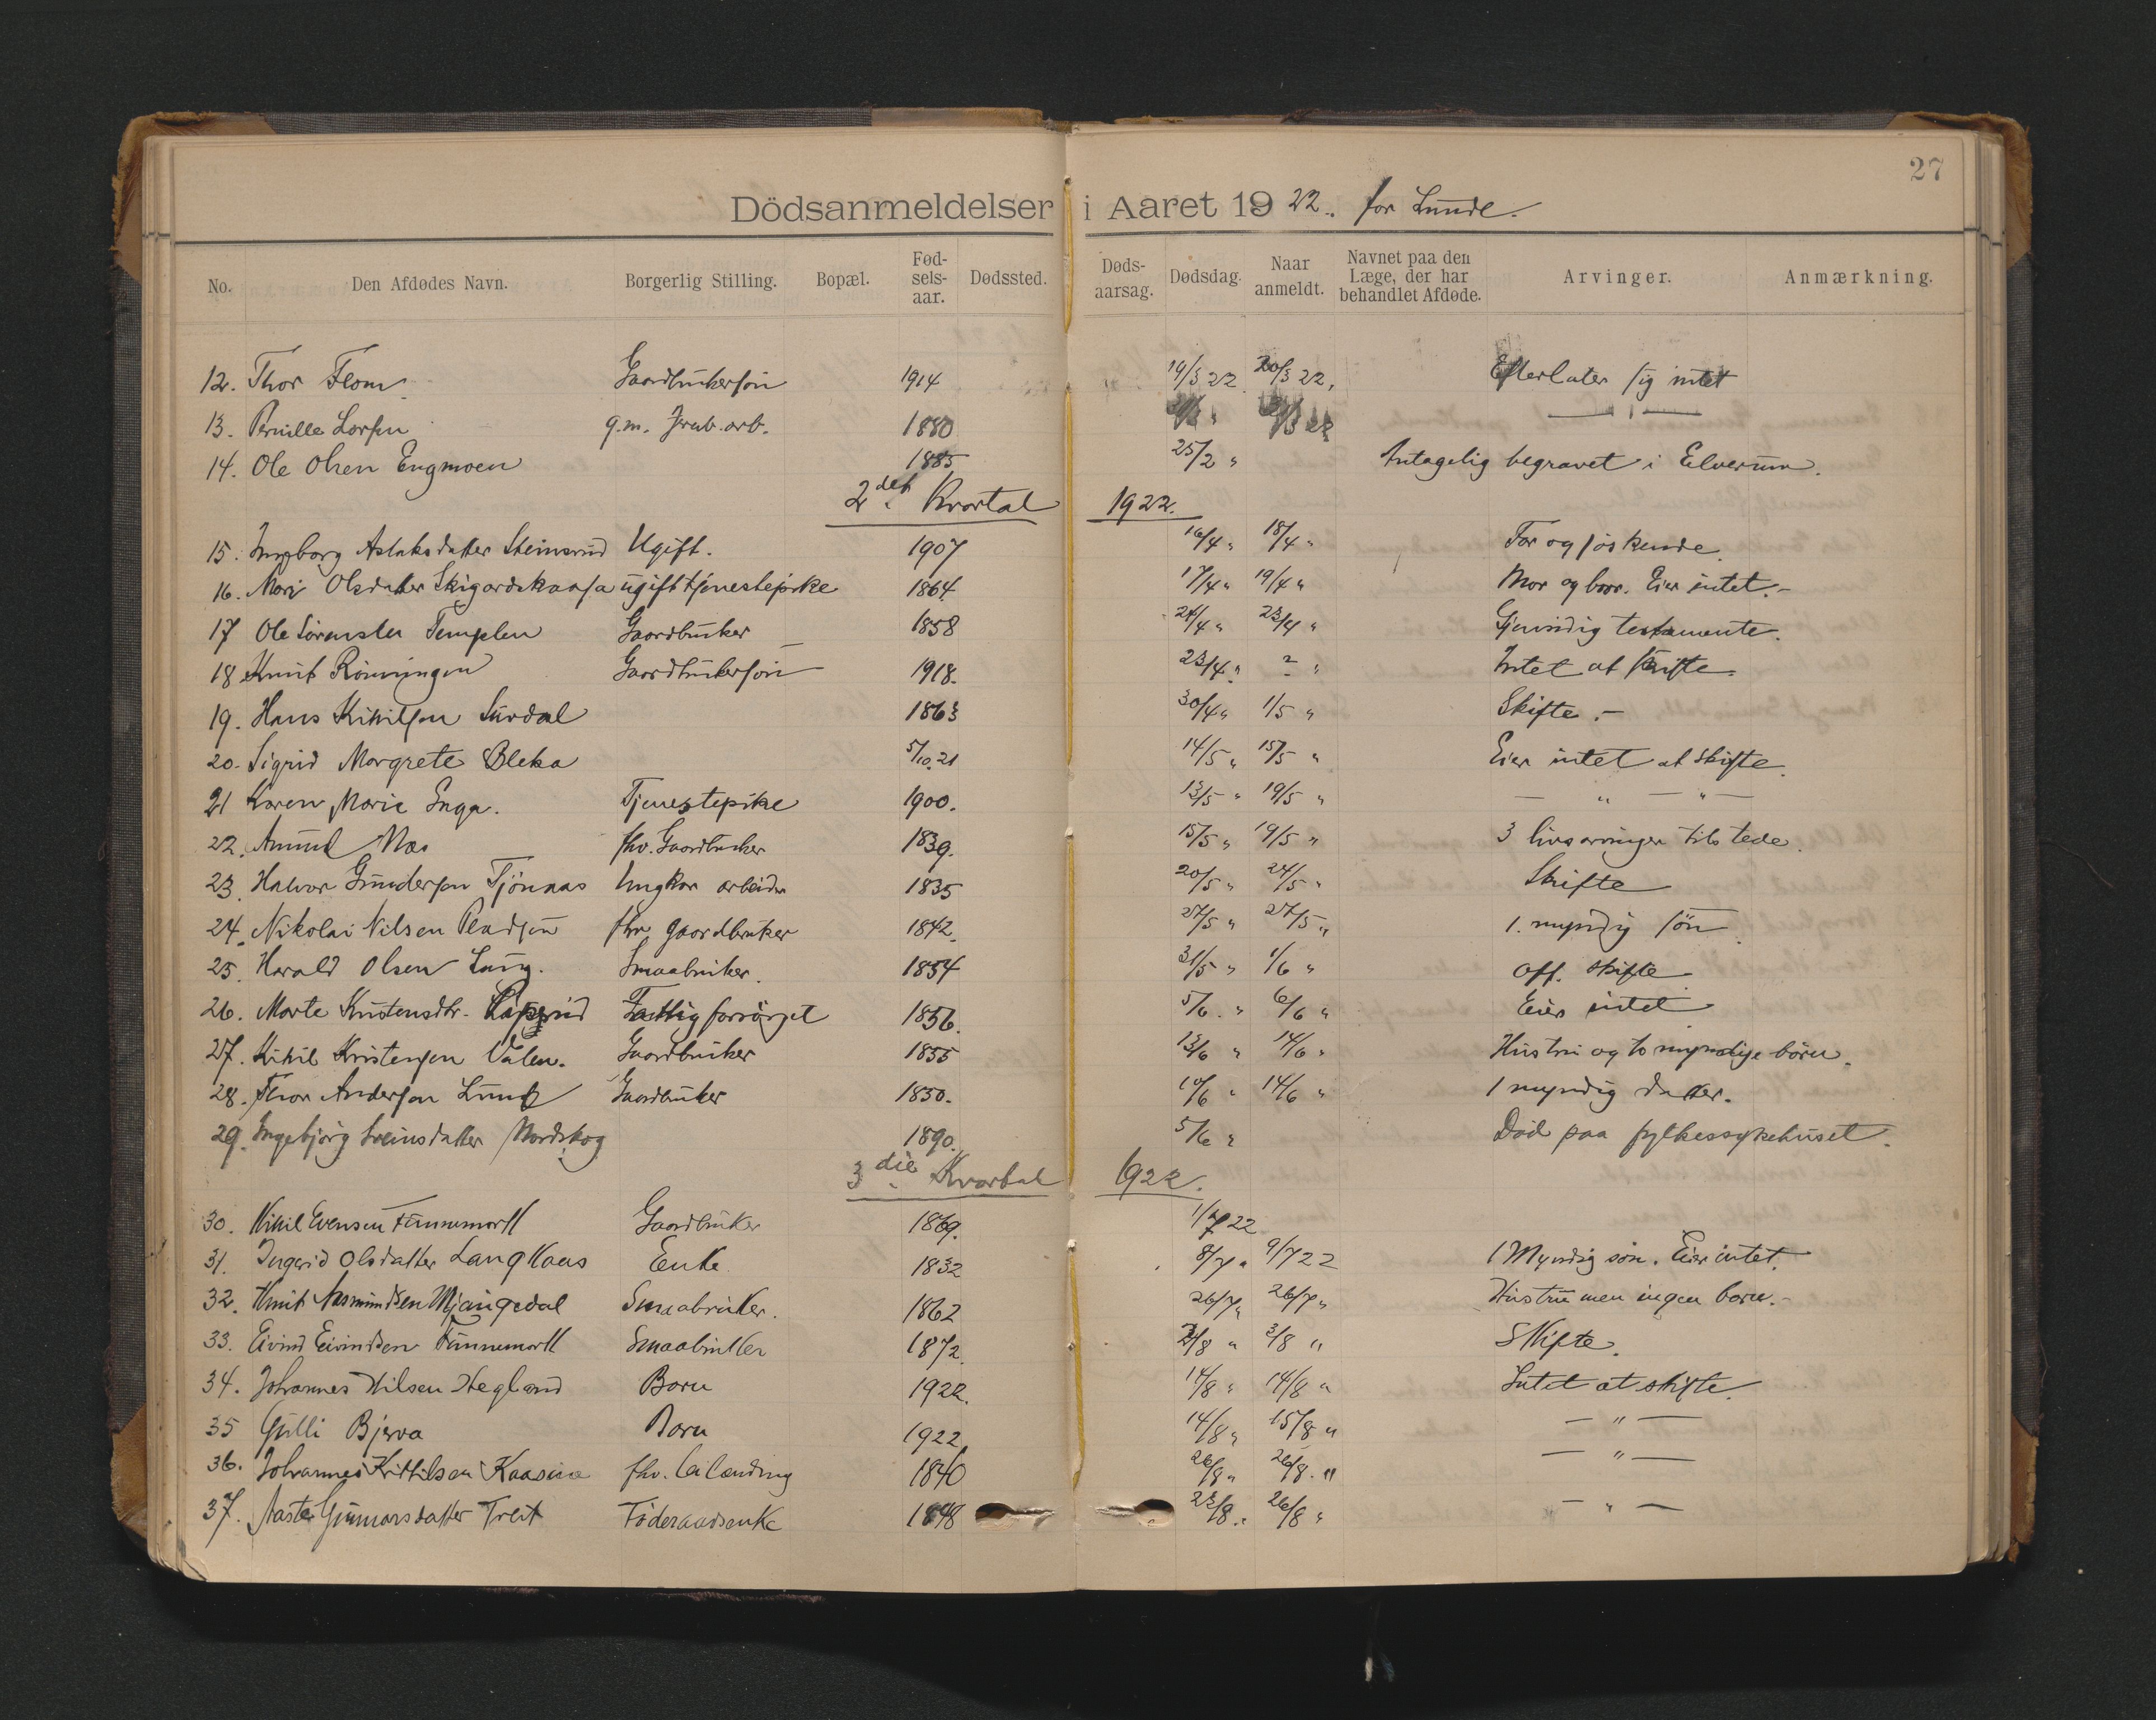 27
Dödsanmeldelser i Aaret 1922. for Lunde.
No. Den Afdødes Navn. Borgerlig Stilling. Bopæl. Fødselsaar. Dødssted. Dødsaarsag. Dødsdag. Naar anmeldt. Navnet paa den Læge, der har behandlet Afdøde. Arvinger. Anmærkning.
12. Thor Flom Gaardbrukersøn 1914 19/3 22 20/3 22. Efterlater sig intet
13. Pernille Larsen g.m. Jernb. arb. 1880 — " —
14. Ole Olsen Engmoen 1885 25/2 " Antagelig begravet i Elverum.
2det Kvartal 1922.
15. Ingborg Aslaksdatter Steinsrud Ugift. 1907 16/4 " 18/4 " Far og søskende.
16. Mari Olsdatter Skigardskaasa ugift tjenestepike 1864 17/4 " 19/4 " Mor og bror. Eier intet.-
17 Ole Sørensen Templen Gaardbruker 1858 21/4 " 23/4 " Gjensidig testamente.
18 Knut Rönningen Gaardbrukersön 1918. 23/4 " " Intet at skifte.
19. Hans Kittilsen Surdal 1863 30/4 " 1/5 " Skifte.-
20. Sigrid Margrete Bleka 5/10.21 14/5 " 15/5 " Eier intet at skifte.
21 Karen Marie Enga. Tjenestepike 1900. 13/5 " 19/5 " — " — " —
22. Amund Næs fhv. Gaardbruker 1839. 15/5 " 19/5 " 3 livsarvinger tilstede.
23. Halvor Gundersen Tjönnaas Ungkar arbeider 1835 20/5 " 24/5 " Skifte
24. Nikolai Nilsen Pladsen fhv gaardbruker 1842. 27/5 " 27/5 " 1. myndig sön.
25. Harald Olsen Smaabruker. 1854 31/5 " 1/6 " Off. skifte
26. Marte Kristensdtr. Fattig forsörget 1856. 5/6. " 6/6 " Eier intet
27. Kittil Kristensen Valen. Gaardbruker 1855 13/6 " 14/6 " Hustru og to myndige börn.
28. Thor Andersen Lund Gaardbruker 1850. 10/6 " 14/6 " 1 myndig datter.
29. Ingebjörg Sveinsdatter Nordskog 1890. 5/6 " Död paa fylkessykehuset.
3die Kvartal 1922.
30. Kittil Evensen Finnemork Gaardbruker 1869. 1/7 22
31. Ingerid Olsdatter Langkaas Enke 1832 8/7 " 9/7 22 1 Myndig sön. Eier intet.
32. Knut Aasmundsen Mjaugedal Smaabruker. 1862 26/7 " 26/7 " Hustru men ingen barn.-
33. Eivind Eivindsen Finnemork Smaabruker 1872. 2/8 " 3/8 " Skifte.
34. Johannes Nilsen Hegland Barn 1922. 14/8 " 14/8 " Intet at skifte.
35 Gulli Bjerva Barn 1922 14/8 " 15/8 " — " —
36. Johannes Kittilsen Kaasene fhv. leilænding 1840 26/8 " 26/8. " — " —
37. Aaste Gunnarsdatter Treit Föderaadsenke 1848 23/8 " 26/8 " — " —